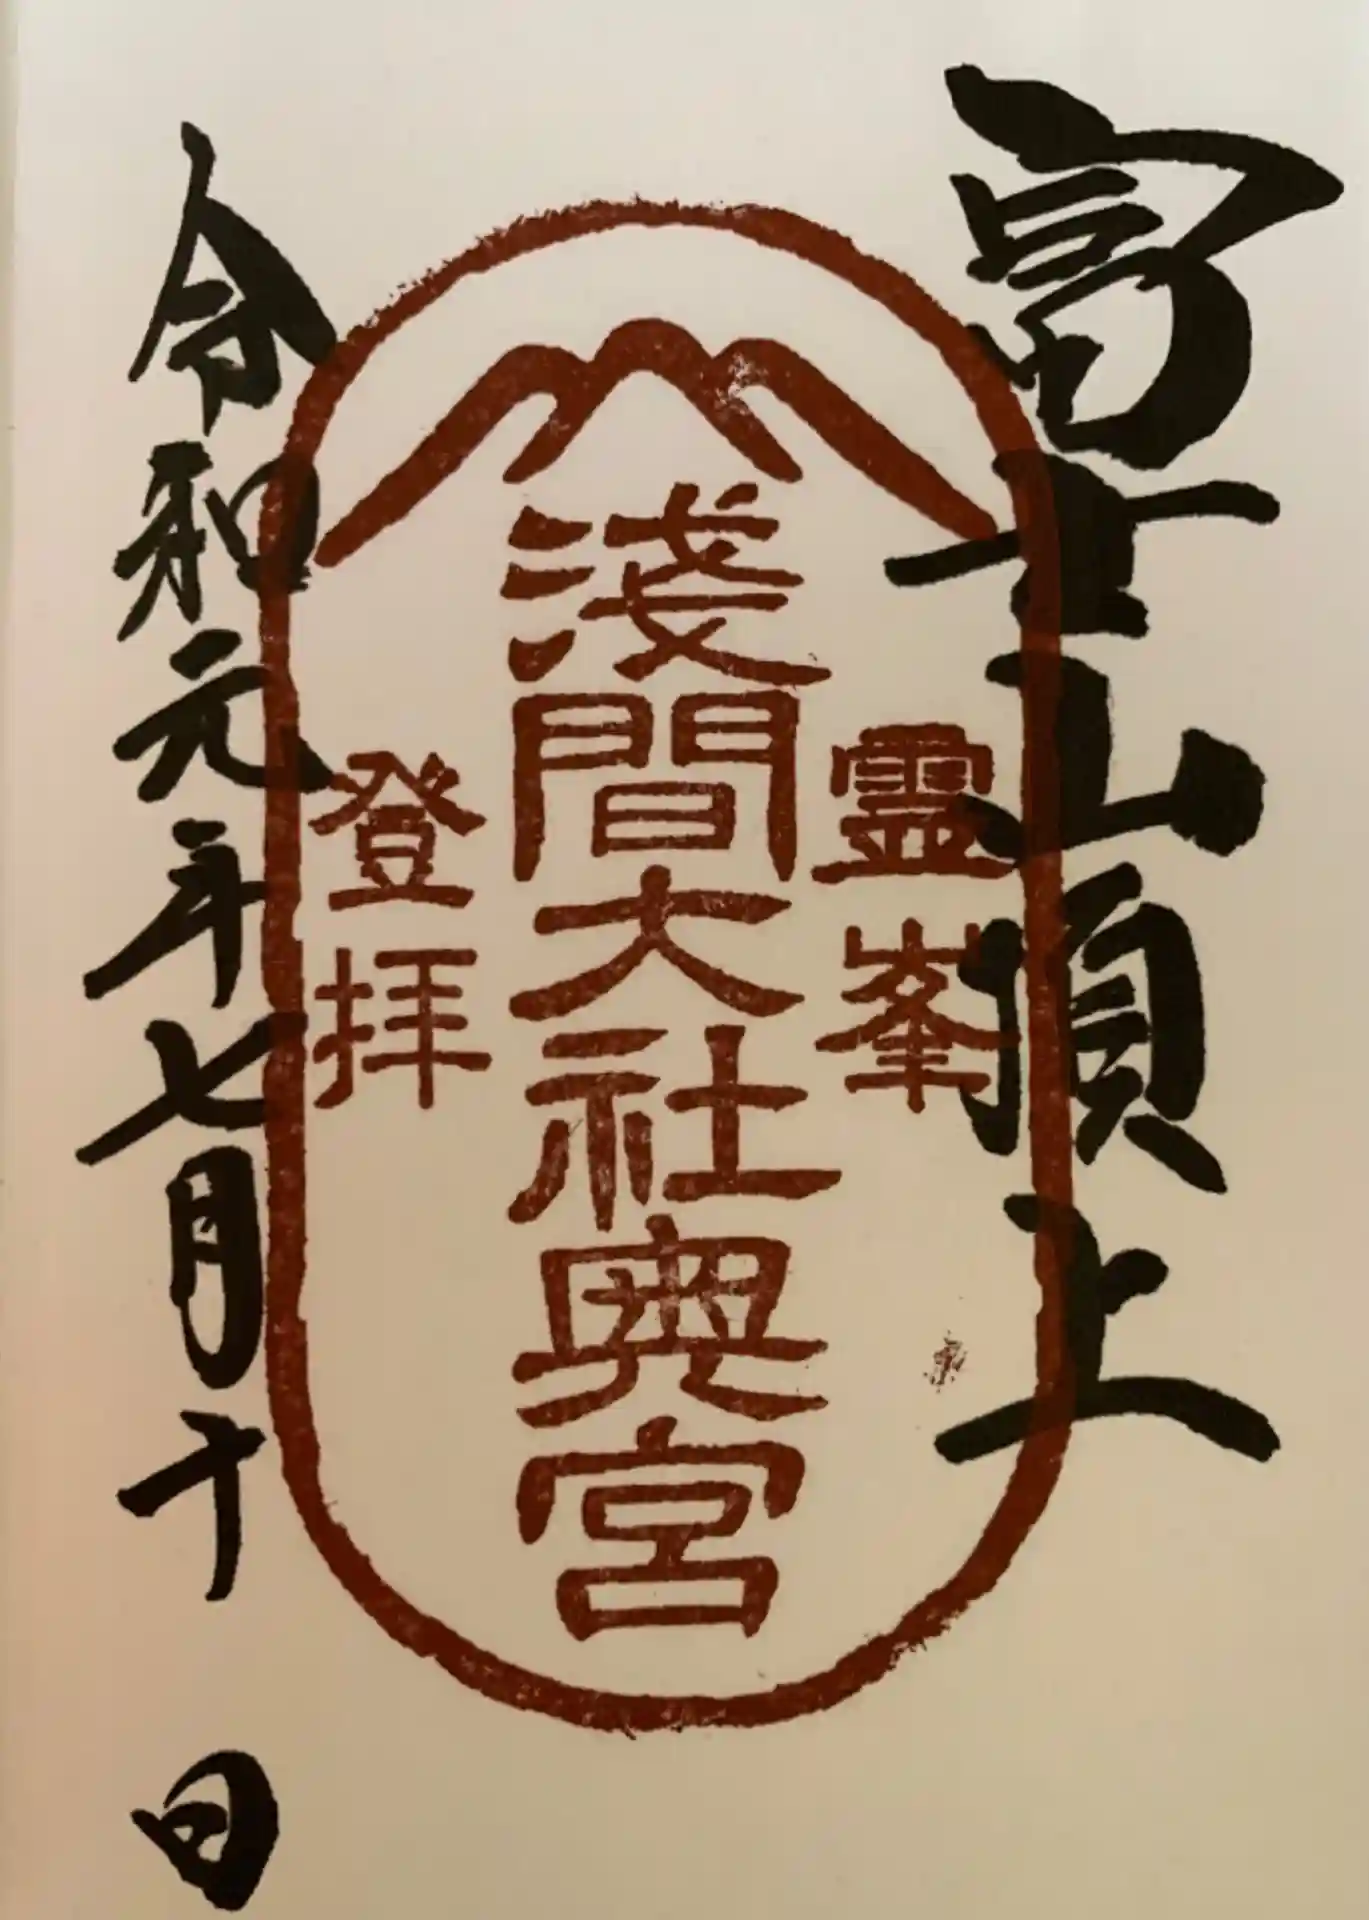 富士山頂上
霊峯
淺間大社奥宮
登拝
令和元年七月十 日